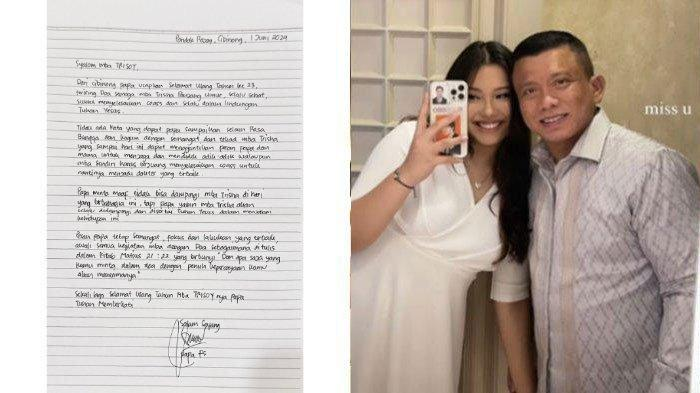 Pondok Rajeg, Cibinong, 1 Juni 2024
Syalom mba TRISOY,
Dari Cibinong papa ucapkan Selamat Ulang Tahun ke 23,
teriring Doa semoga mba Trisha Panjang Umur, selalu sehat,
sukses menyelesaikan coass dan selalu dalam lindungan
Tuhan Yesus.
Tidak ada kata yang dapat papa sampaikan selain Rasa
Bangga dan kagum dengan semangat dan tekad mba Trisha
yang sampai hari ini dapat menggantikan peran papa dan
mama untuk menjaga dan mendidik adik adik walaupun
mba sendiri harus berjuang menyelesaikan coass untuk
nantinya menjadi dokter yang terbaik.
Papa minta maaf tidak bisa dampingi mba Trisha di hari
yang berbahagia ini, tapi papa yakin mba Trisha akan
selalu didampingi dan disertai Tuhan Yesus dalam menjalani
kehidupan ini
Pesan papa tetap semangat, fokus dan lakukan yang terbaik,
awali semua kegiatan mba dengan Doa sebagaimana ditulis
dalam Kitab Matius 21 : 22 yang bunyi "Dan apa saja yang
kamu minta dalam doa dengan penuh kepercayaan kamu
akan menerimanya"
Sekali lagi Selamat Ulang Tahun Mba TRISOY nya papa
Tuhan Memberkati
Salam Sayang
Papa FS
miss u